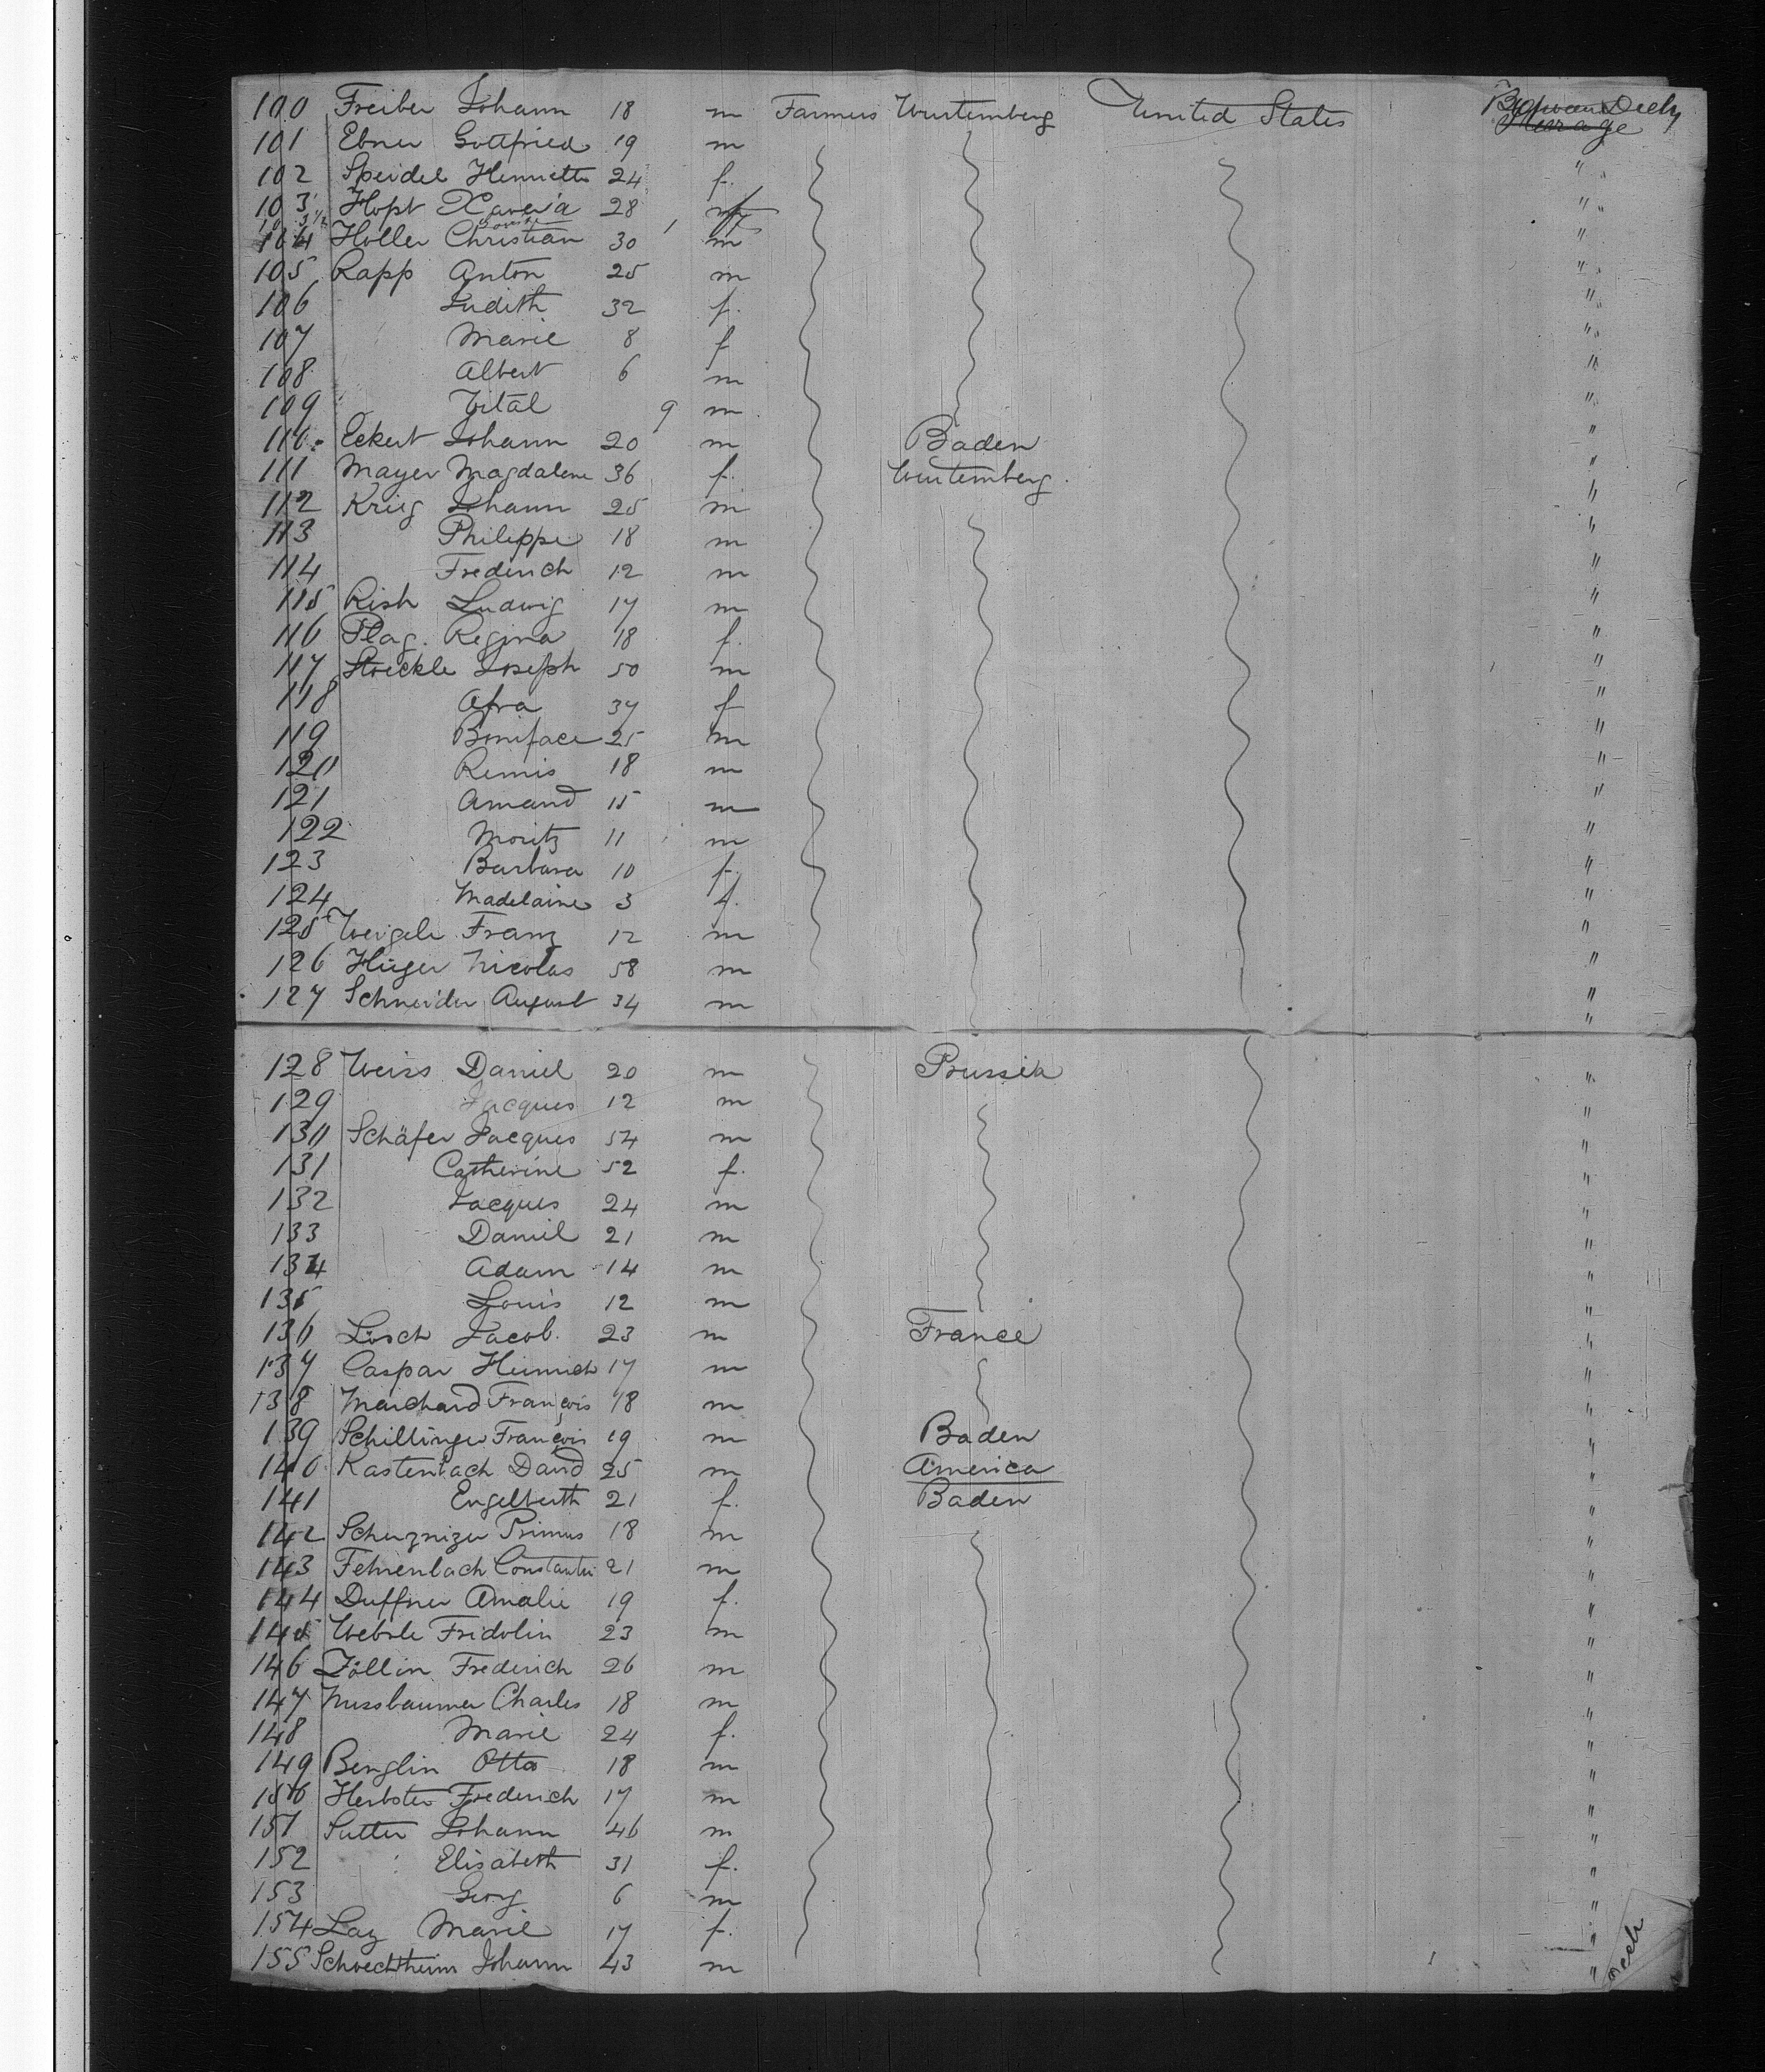 100 Freiber Johann 18 m Farmers Wurtemberg United States Between Deck
101 Ebner Gottfried 19 m "
102 Speidel Henriette 24 f. "
103 Hopt Xaveria 28 f "
104 Holler Christian 30 m "
105 Rapp Anton 25 m "
106 Judith 32 f. "
107 Marie 8 f "
108 Albert 6 m "
109 Vital 9 m "
110 Eckert Johann 20 m Baden "
111 Mayer Magdalene 36 f. Wurtemberg. "
112 Krieg Johann 25 m "
113 Philippe 18 m "
114 Frederich 12 m "
115 Rish Ludwig 17 m "
116 Plag. Regina 18 f. "
117 Stoeckle Joseph 50 m "
118 Afra 37 f "
119 Boniface 25 m "
120 Remis 18 m "
121 Amand 15 m "
122 Moritz 11 m "
123 Barbara 10 f. "
124 Madelaine 3 f. "
125 Weigele Franz 12 m "
126 Hüger Nicolas 58 m "
127 Schneider August 34 m "
128 Weiss Daniel 20 m Prussia "
129 Jacques 12 m "
130 Schäfer Jacques 54 m "
131 Catherine 52 f. "
132 Jacques 24 m "
133 Daniel 21 m "
134 Adam 14 m "
135 Louis 12 m "
136 Lösch Jacob. 23 m France "
137 Caspar Heinrich 17 m "
138 Marchand François 18 m "
139 Schillinger François 19 m Baden "
140 Kastenbach David 25 m America "
141 Engelberth 21 f. Baden "
142 Primus 18 m "
143 Fehrenbach Constantin 21 m "
144 Duffner Amalie 19 f. "
145 Wehrle Fridolin 23 m "
146 Zöllin Frederich 26 m "
147 Nussbaumer Charles 18 m "
148 Marie 24 f. "
149 Benglin Otto 18 m "
150 Herbster Frederich 17 m "
151 Sutter Johann 46 m "
152 Elisabeth 31 f. "
153 Georg 6 m "
154 Lay Marie 17 f. "
155 Schoechtheim Johann 43 m "